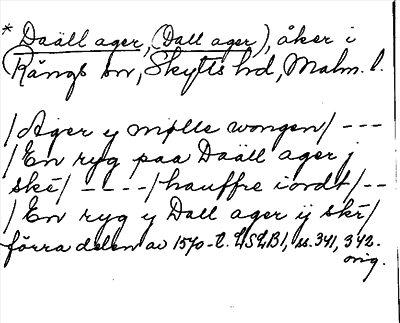 * Daäll ager, (Dall ager), åker i
Rängs sn, Skytts hd, Malm. l.
/Ager y mølle wongen/ ---
/En ryg paa Daäll ager j
skè/ ---- /hauffre iordt/ --
/En ryg y Dall ager ÿ skè/
förra delen av 1570-t. LSLB1, ss. 341, 342.
orig.